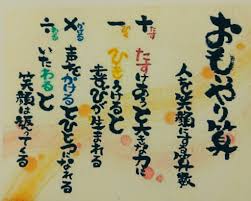 おもいやり算
人を笑顔にする算数
＋ たす
たすけあうと大きな力に
－ ひく
ひきうけると
喜びが生まれる
× かける
声をかけるとひとつになれる
÷ わる
いたわると
笑顔は返ってくる